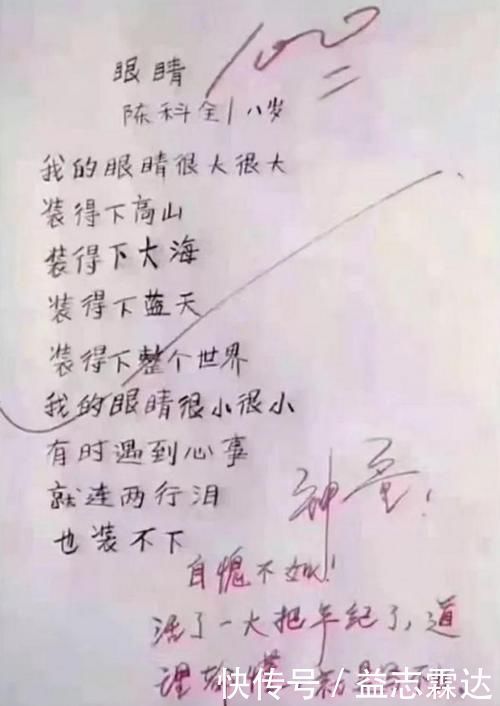 100
眼睛
陈科全 八岁
我的眼睛很大很大
装得下高山
装得下大海
装得下蓝天
装得下整个世界
我的眼睛很小很小
有时遇到心事
就连两行泪
也装不下
神童!
自愧不如!
活了一大把年纪了,道
理
快传号/益志霖达